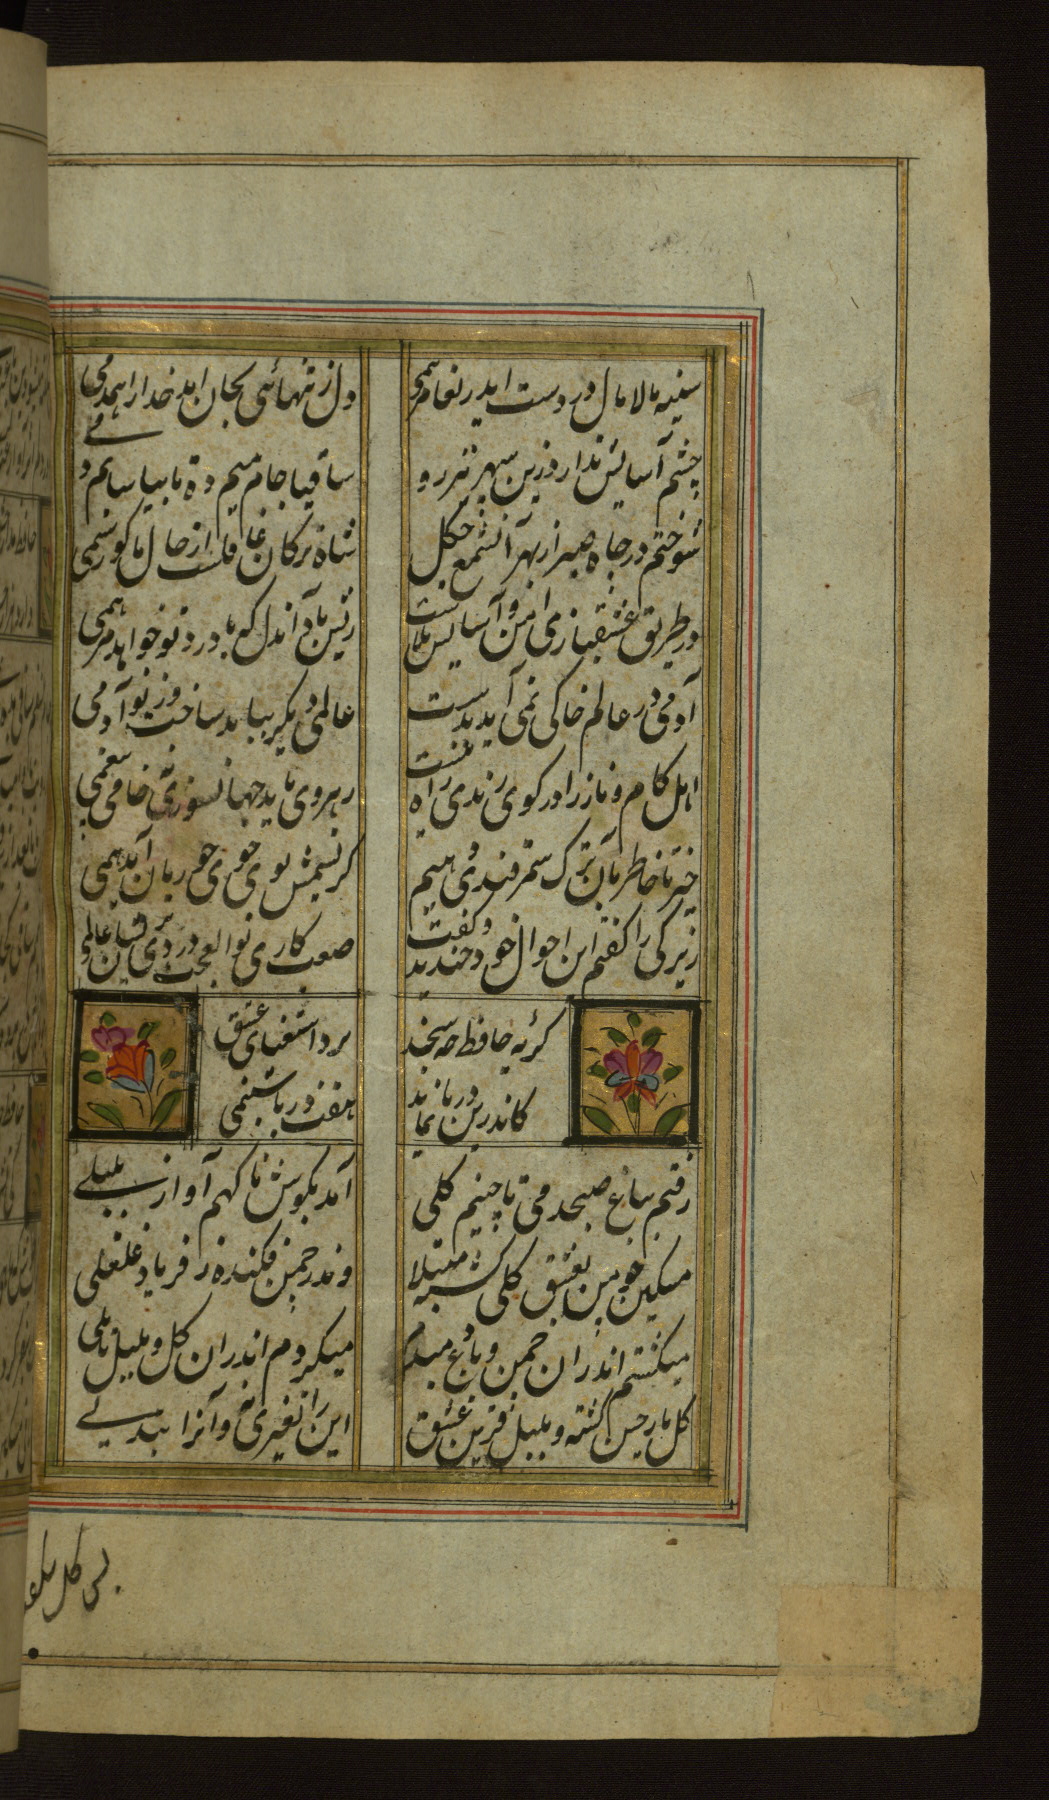 سینه مالامال درد است ای دریغا مرهمی
دل ز تنهائی بجان آمد خدا را همدمی
چشم آسایش ندارد زین سپهر تیز رو
ساقیا جام میم ده تا بیاسایم دمی
سوختم در چاه صبر از بهر آنشمع چگل
شاه ترکان غافلست از حال ما کو رستمی
در طریق عشقبازی امن و آسایش بلاست
ریش باد آندل که با درد تو خواهد مرهمی
آدمی در عالم خاکی نمی آید بدست
عالمی دیگر بباید ساخت وز نو آدمی
اهل کام و ناز را در کوی رندی راه نیست
رهروی باید جهانسوزی نه خامی بیغمی
خیز تا خاطر بآن ترک سمرقندی دهیم
کز نسیمش بوی جوی جوی مولیان آید همی
زیرکی را گفتم این احوال خود خندید و گفت
صعب کاری بوالعجب دردی پریشان عالمی
گریه حافظ چه سنجد
برد استغنای عشق
کاندرین دریا نماید
هفت دریا شبنمی
رفتم بباغ صبحدمی تا چنیم گلی
آمد بگوش ناگهم آواز بلبلی
مسکین چو من بعشق گلی گشته مبتلا
وندر چمن فکنده ز فریاد غلغلی
میگشتم اندران چمن و باغ دمبدم
میکردم اندران گل و بلبل تاملی
گل یار حسن گشته و بلبل قرین عشق
این را تغیری نه و آنرا تبدلی
بس گل شکفته